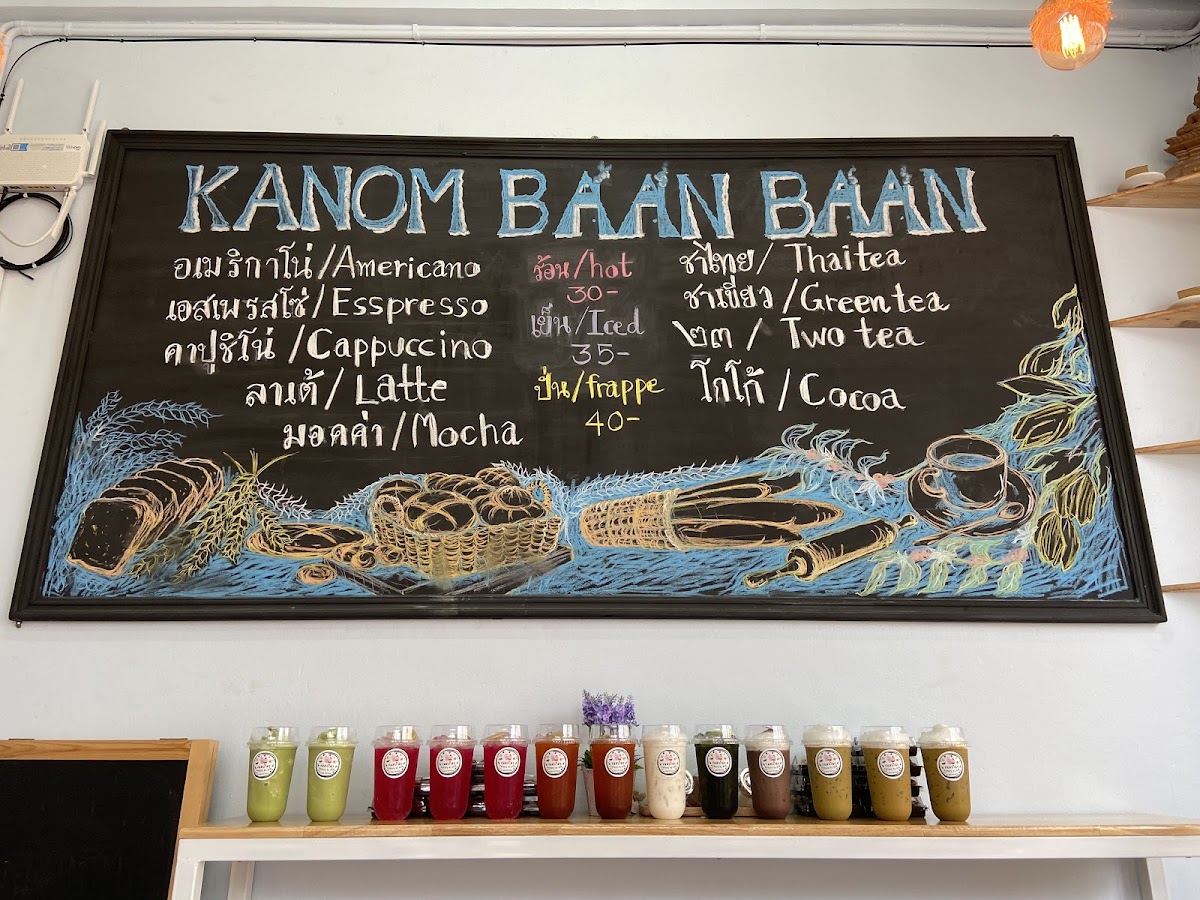 KANOM BAAN BAAN
อเมริกาโน่/Americano
เอสเพรสโซ่/Esspresso
คาปูชิโน่/Cappuccino
ลาเต้/Latte
มอคค่า/Mocha
ร้อน/hot
30-
เย็น/Iced
35-
ปั่น/frappe
40-
ชาไทย/Thai tea
ชาเขียว/Green tea
๒ทา/Two tea
โกโก้/Cocoa